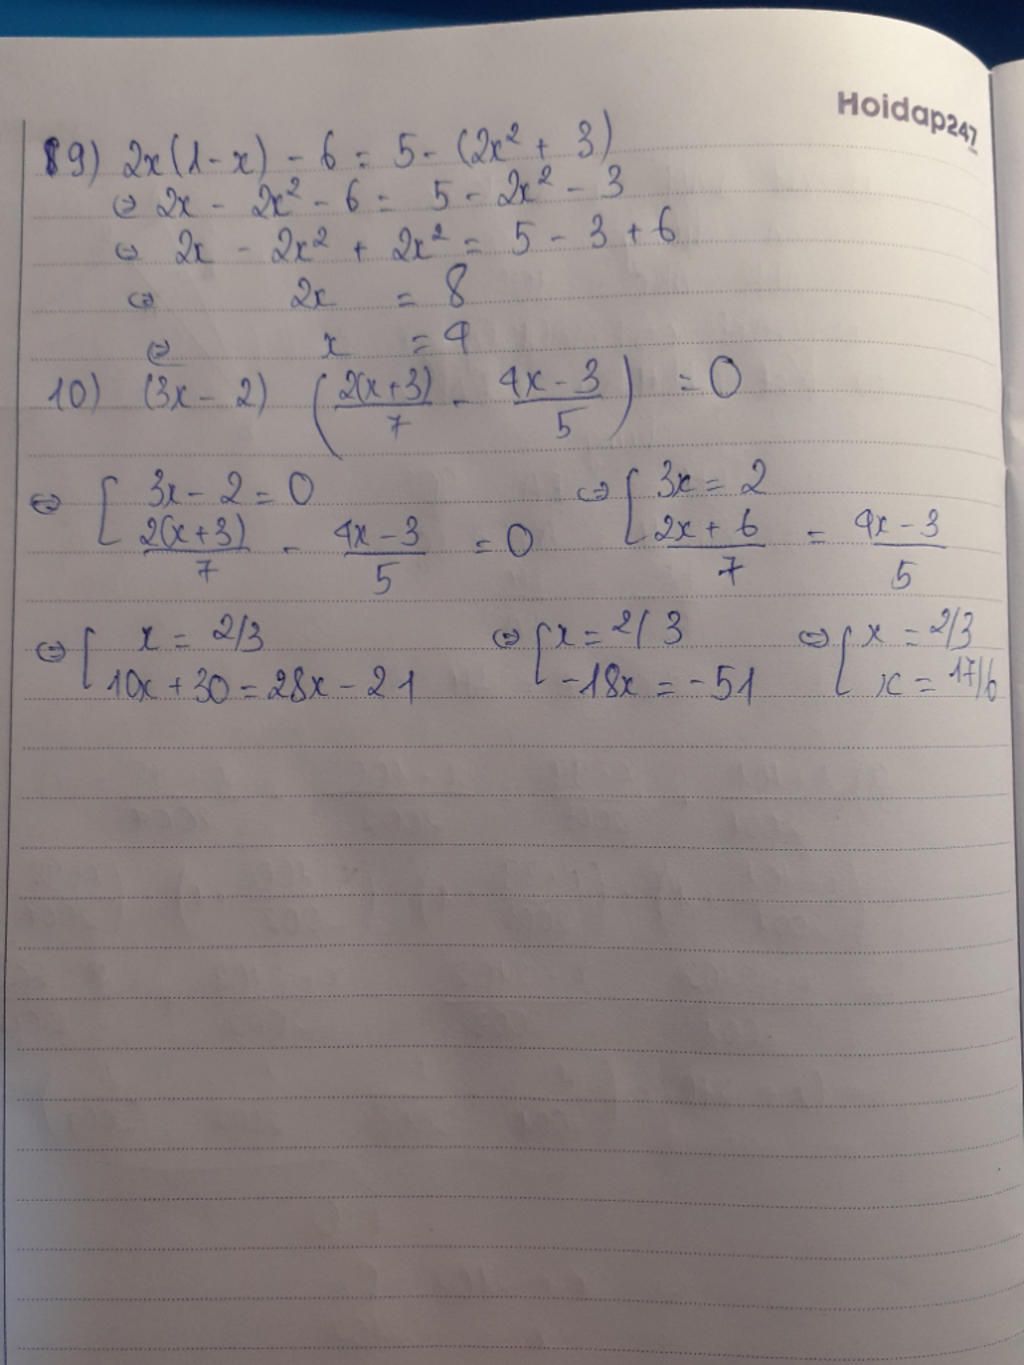 Hoidap247
9) 2x(1-x) - 6 = 5 - (2x² + 3)
⇔ 2x - 2x² - 6 = 5 - 2x² - 3
⇔ 2x - 2x² + 2x² = 5 - 3 + 6
⇔ 2x = 8
⇔ x = 4
10) (3x - 2) (2(x+3)/7 - 4x-3/5) = 0
⇔ [ 3x - 2 = 0 ⇔ [ 3x = 2
2(x+3)/7 - 4x-3/5 = 0 2x+6/7 = 4x-3/5
⇔ [ x = 2/3 ⇔ [ x = 2/3 ⇔ [ x = 2/3
10x + 30 = 28x - 21 -18x = -51 x = 17/6